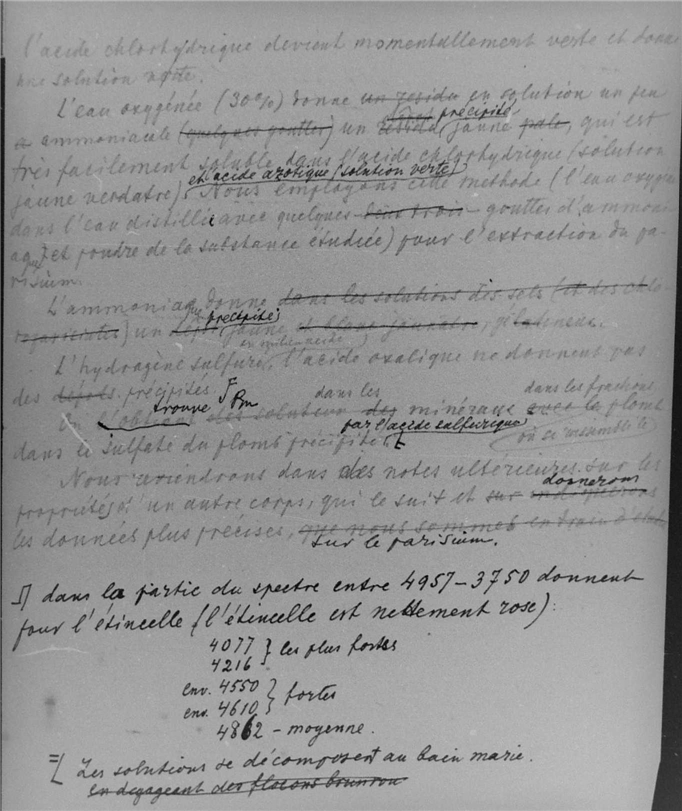 l'acide chlorhydrique devient momentallement verte et donne
une solution verte.
L'eau oxygénée (30%) donne un residu en solution un peu
précipité
ammoniacale (quelques gouttes) un jaune pale, qui est
très facilement soluble dans l'acide chlorhydrique (solution
et acide azotique (solution verte)
jaune verdatre). Nous employons cette methode (l'eau oxygen
dans l'eau distillée avec quelques deux trois gouttes d'ammoni
et poudre de la substance étudiée) pour l'extraction du pa-
risium.
L'ammoniaque donne dans les solutions des sels (et des chlo
précipité
un jaune et blanc jaunatre, gélatineux.
en milieu acide
L'hydrogène sulfuré, l'acide oxalique ne donnent pas
des dépots précipités
trouve Pm dans les dans les fractions
On l'obtient des solution des minéraux avec le plomb
par l'acide sulfurique
dans le sulfate du plomb précipité où il s'assemble
Nous dans des notes ultérieures sur les
donnerons
propriétés d'un autre corps, qui le suit et sur indiquerons
les données plus precises, que nous sommes en train d'etud
sur le parisium.
dans la partie du spectre entre 4957-3750 donnent
pour l'étincelle (l'étincelle est nettement rose):
4077 } les plus fortes
4216
env. 4550 } fortes
env. 4610
4862 - moyenne.
Les solutions se décomposent au bain marie.
en degageant des flocons